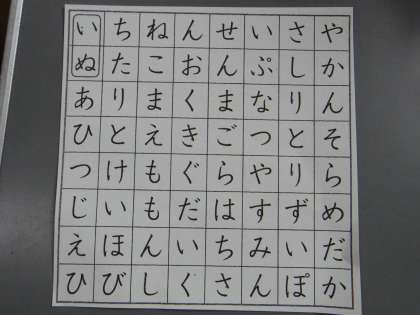 いちねんせいさや
ぬたこおんぷしか
ありまくまなりん
ひとえきごつとそ
つけもぐらやりら
じいもだはすずめ
えほんいちみいだ
ひびしくさんぽか